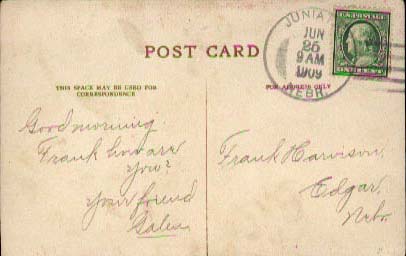 JUNIATA
JUN
25
9 AM
1909
NEBR.
U.S. POSTAGE
POST CARD
THIS SPACE MAY BE USED FOR
CORRESPONDENCE
FOR ADDRESS ONLY
Good morning
Frank how are
you?
Your friend
Galen
Frank Harrison,
Edgar,
Nebr.